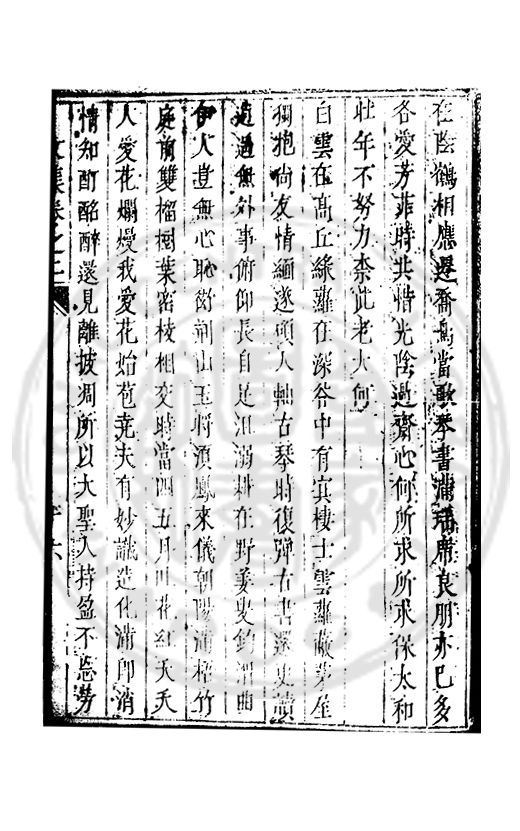 在陰鶴相應遷喬鳥當歌琴書滿瑤席良朋亦已多
各愛芳菲時共惜光陰過齋心何所求所求保太和
壯年不努力柰此老大何
白雲在高丘綠蘿在深谷中有冥棲士雲蘿蔽茅屋
獨抱尚友情緬遂碩人軸古琴時復彈右書還史讀
過無外事俯仰長自足沮溺耕在野姜叟釣渭曲
伊人豈無心恥衒荊山玉將須鳳來儀朝陽滿梧竹
庭前雙榴樹葉密枝相交時當四五月叶花紅夭夭
人愛花爛熳我愛花始苞堯夫有妙識造化滿即消
情知酊酩醉還見離披凋所以大聖人持盈不忘勞
文集卷之二 六